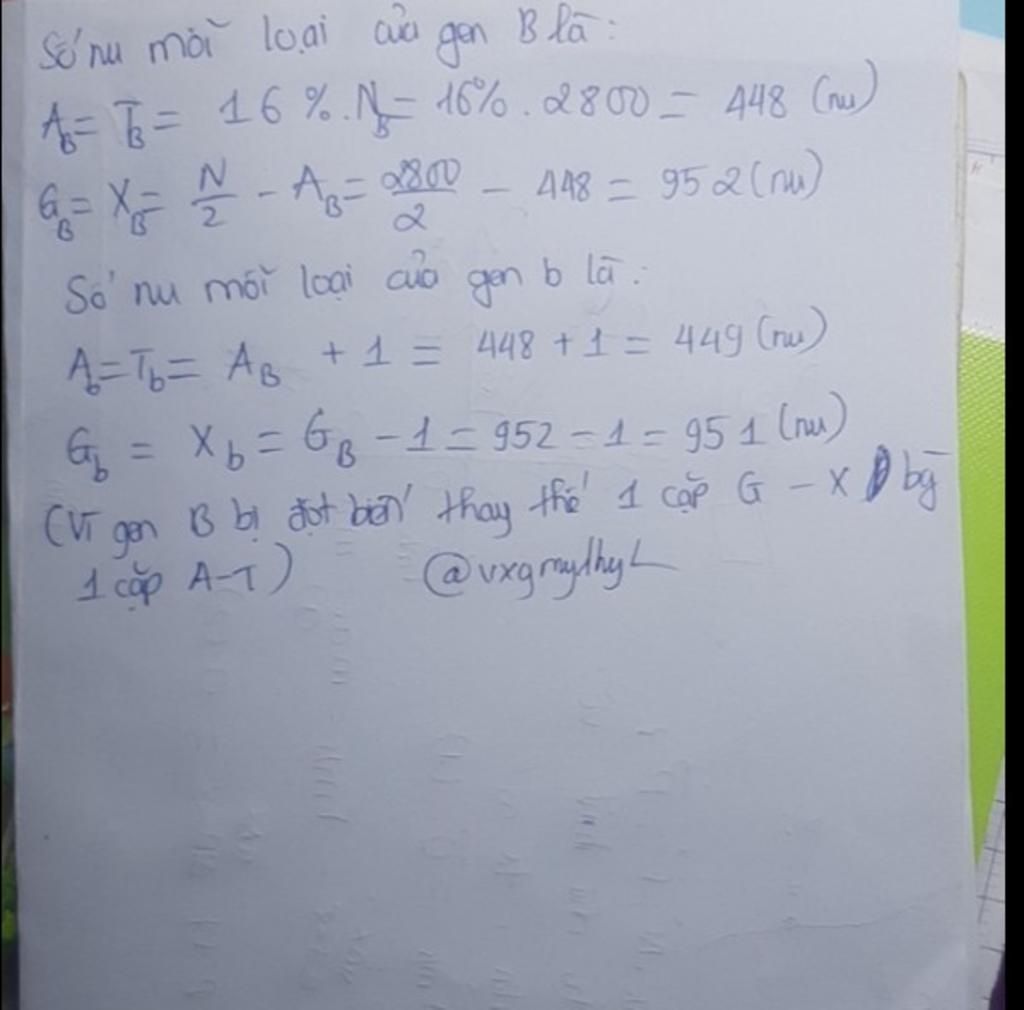 Số nu mỗi loại của gen B là:
A_B = T_B = 16%.N_B = 16%.2800 = 448 (nu)
G_B = X_B = N/2 - A_B = 2800/2 - 448 = 952 (nu)
Số nu mỗi loại của gen b là:
A_b = T_b = A_B + 1 = 448 + 1 = 449 (nu)
G_b = X_b = G_B - 1 = 952 - 1 = 951 (nu)
(Vì gen B bị đột biến thay thế 1 cặp G - X bg̅
1 cặp A-T) @vxgmythyL